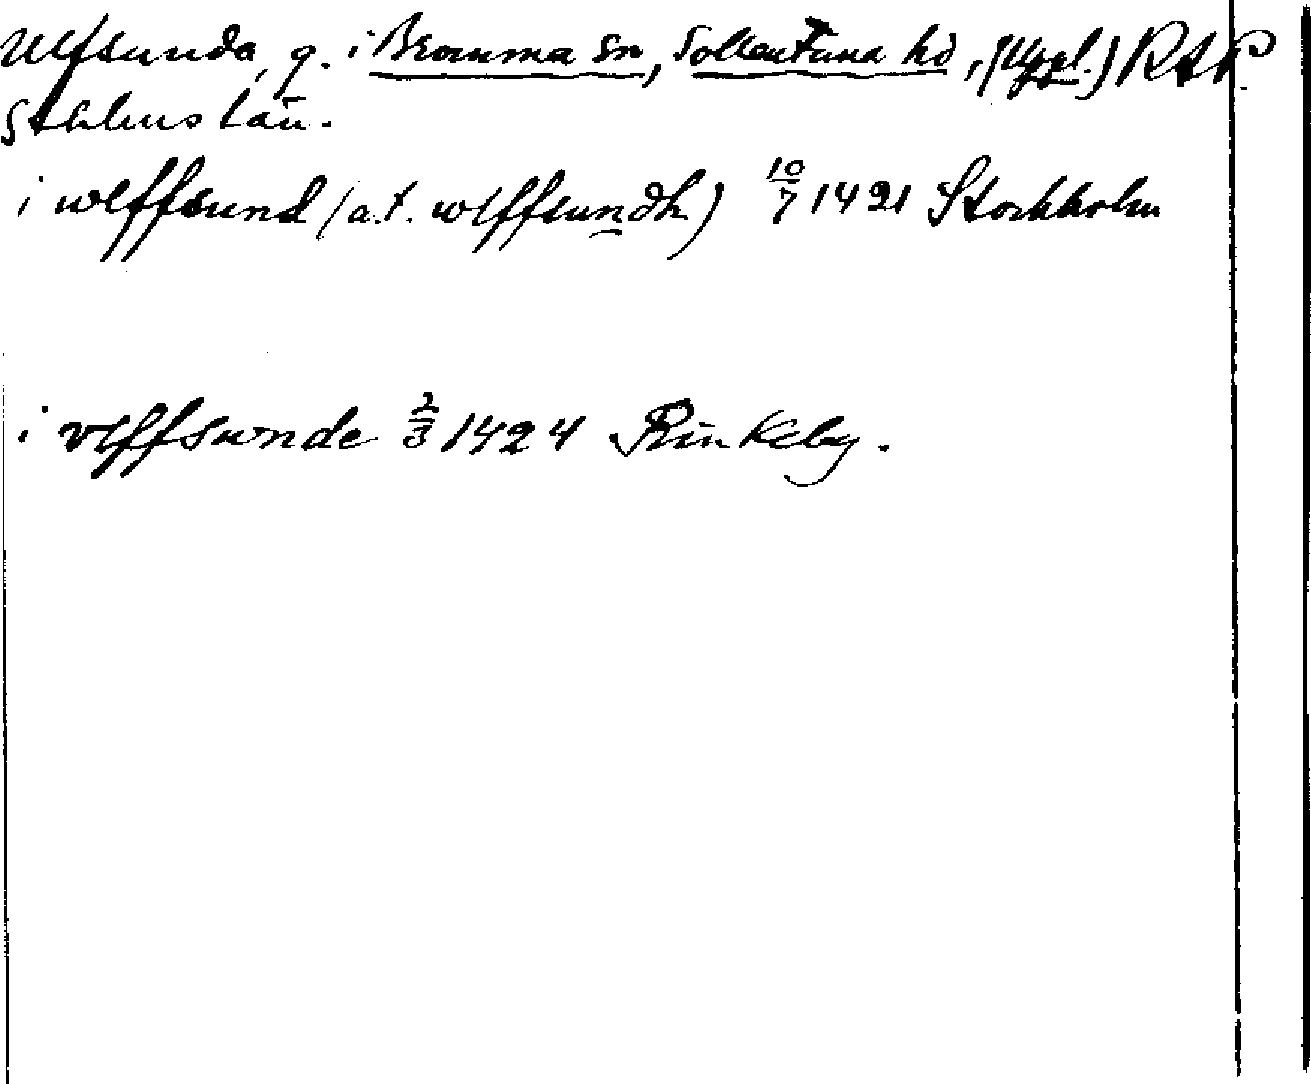 Ulfsunda, g. i Bromma sn, Sollentuna hd, (Uppl.) RAP
Sthlms län.
i wlffsund (a.t. wlffsundh) 10/7 1421 Stockholm
i vlffswnde 2/3 1424 Rinkeby.